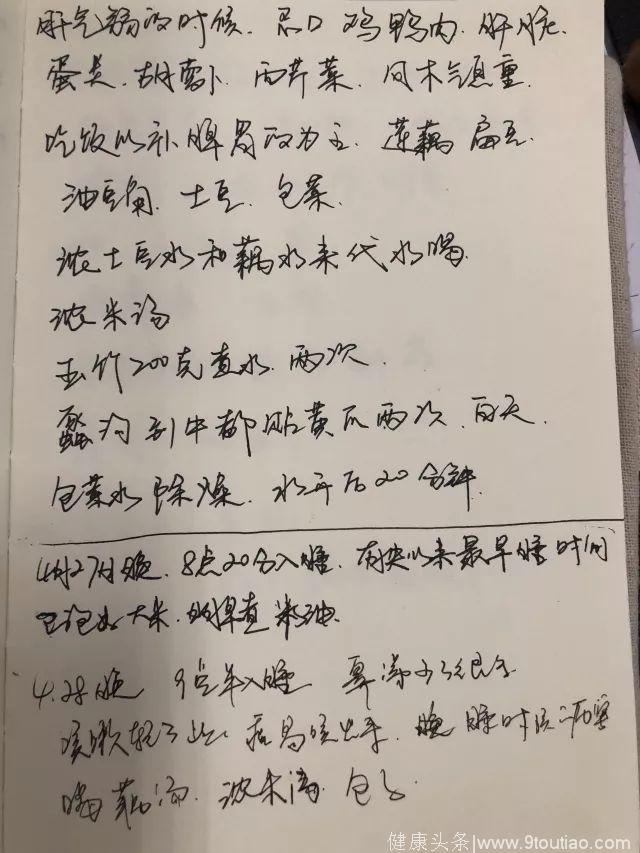 肝气弱的时候.忌口 鸡鸭肉.
蛋类.胡萝卜.西芹菜.因木气息重.
吃饭以补脾胃的为主.莲藕 扁豆.
油豆角.土豆.包菜.
浓土豆水和藕水来代水喝.
浓米汤
玉竹200克煮水.两次.
蠡沟 到中都贴黄瓜两次.白天.
包菜水除燥.水开后20分钟.
4月27日晚.8点20分入睡.有史以来最早睡时间
已泡好大米.明早煮米油.
4.28晚 9点半入睡 鼻涕少了很多
咳嗽轻了些.痰易咳出来.晚睡时
喝藕汤.浓米汤.包
健康头条|www.9toutiao.com